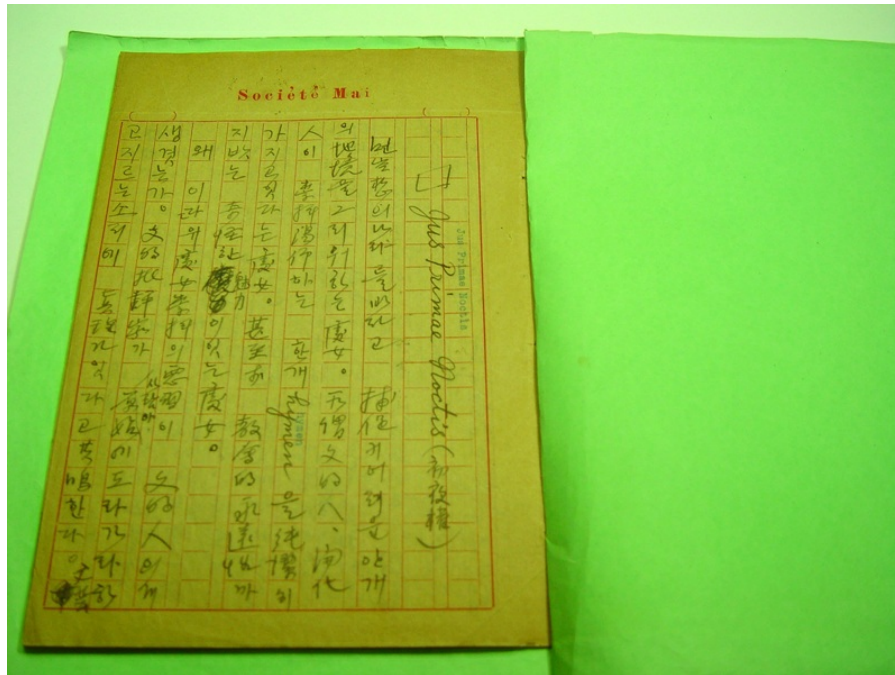 Société Mai
Jus Primae Noctis
Jus Primae Noctis (初夜權)
의나라를바라고 捕促키어려운안개
의地境을그리워하는處女。所謂文明人、文化
人이 崇拜渴仰하는 한개 hymen 을純潔히
hymen
가지고잇다는處女。甚至於 敎會的永遠性까
지밧는 怪한魅力이잇는處女。
왜 이따위處女崇拜의惡習이 文明人에게
생겻는가。文明批評家가 原始에도라가라하
고지르는소리에 眞理가잇다고共鳴한다。